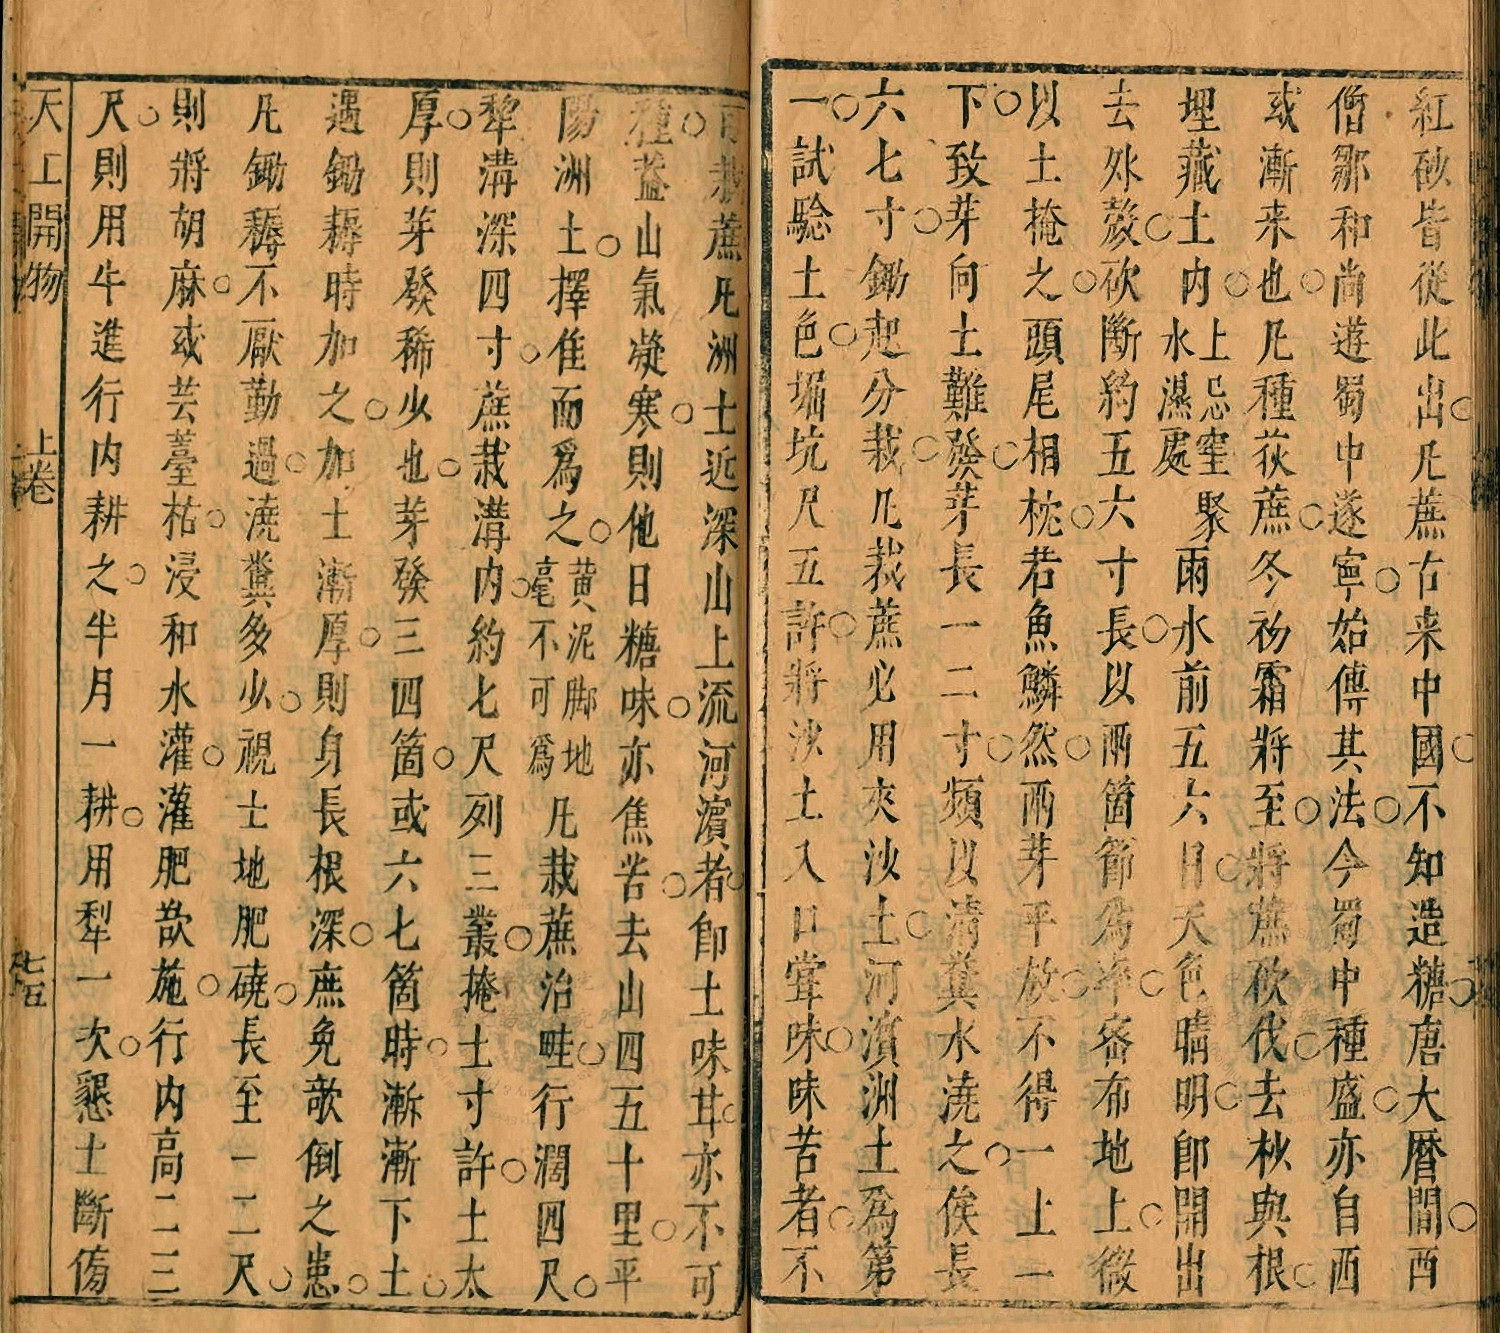 紅砂皆從此出○凡蔗古来中國○不知造糖○唐大曆間○西
僧鄒和尚遊蜀中遂寧○始傳其法○今蜀中種盛○亦自西
或漸来也○凡種荻蔗○冬初霜將至○將蔗砍伐○去杪與根○
埋藏土内○上忌窪聚水濕處雨水前五六日○天色晴明○即開出
去外殻○砍斷約五六寸長○以兩箇節爲率○密布地上○微
以土掩之○頭尾相枕○若魚鱗然○兩芽平放○不得一上一
下○致芽向土難發○芽長一二寸○頻以清糞水澆之○俟長
六七寸○鋤起分栽○凡栽蔗必用夾沙土○河濱洲土爲第
一○試驗土色○堀坑尺五許○將沙土入口嘗味○味苦者○不
可栽蔗○凡洲土近深山上流河濱者○即土味甘○亦不可
種○葢山氣凝寒○則他日糖味○亦焦苦○去山四五十里○平
陽洲土○擇佳而爲之○黄泥脚地毫不可爲凡栽蔗治畦○行濶四尺○
犂溝深四寸○蔗栽溝内○約七尺列三叢○掩土寸許○土太
厚○則芽發稀少也○芽發三四箇○或六七箇時○漸漸下土○
遇鋤耨時加之○加土漸厚○則身長根深○庶免欹倒之患○
凡鋤耨不厭勤過○澆糞多少○視土地肥磽○長至一二尺○
則將胡麻○或芸薹枯○浸和水灌○灌肥欲施○行内高二三
尺○則用牛進行内耕之○半月一耕○用犂一次○懇土斷傍
天工開物 上卷 七五